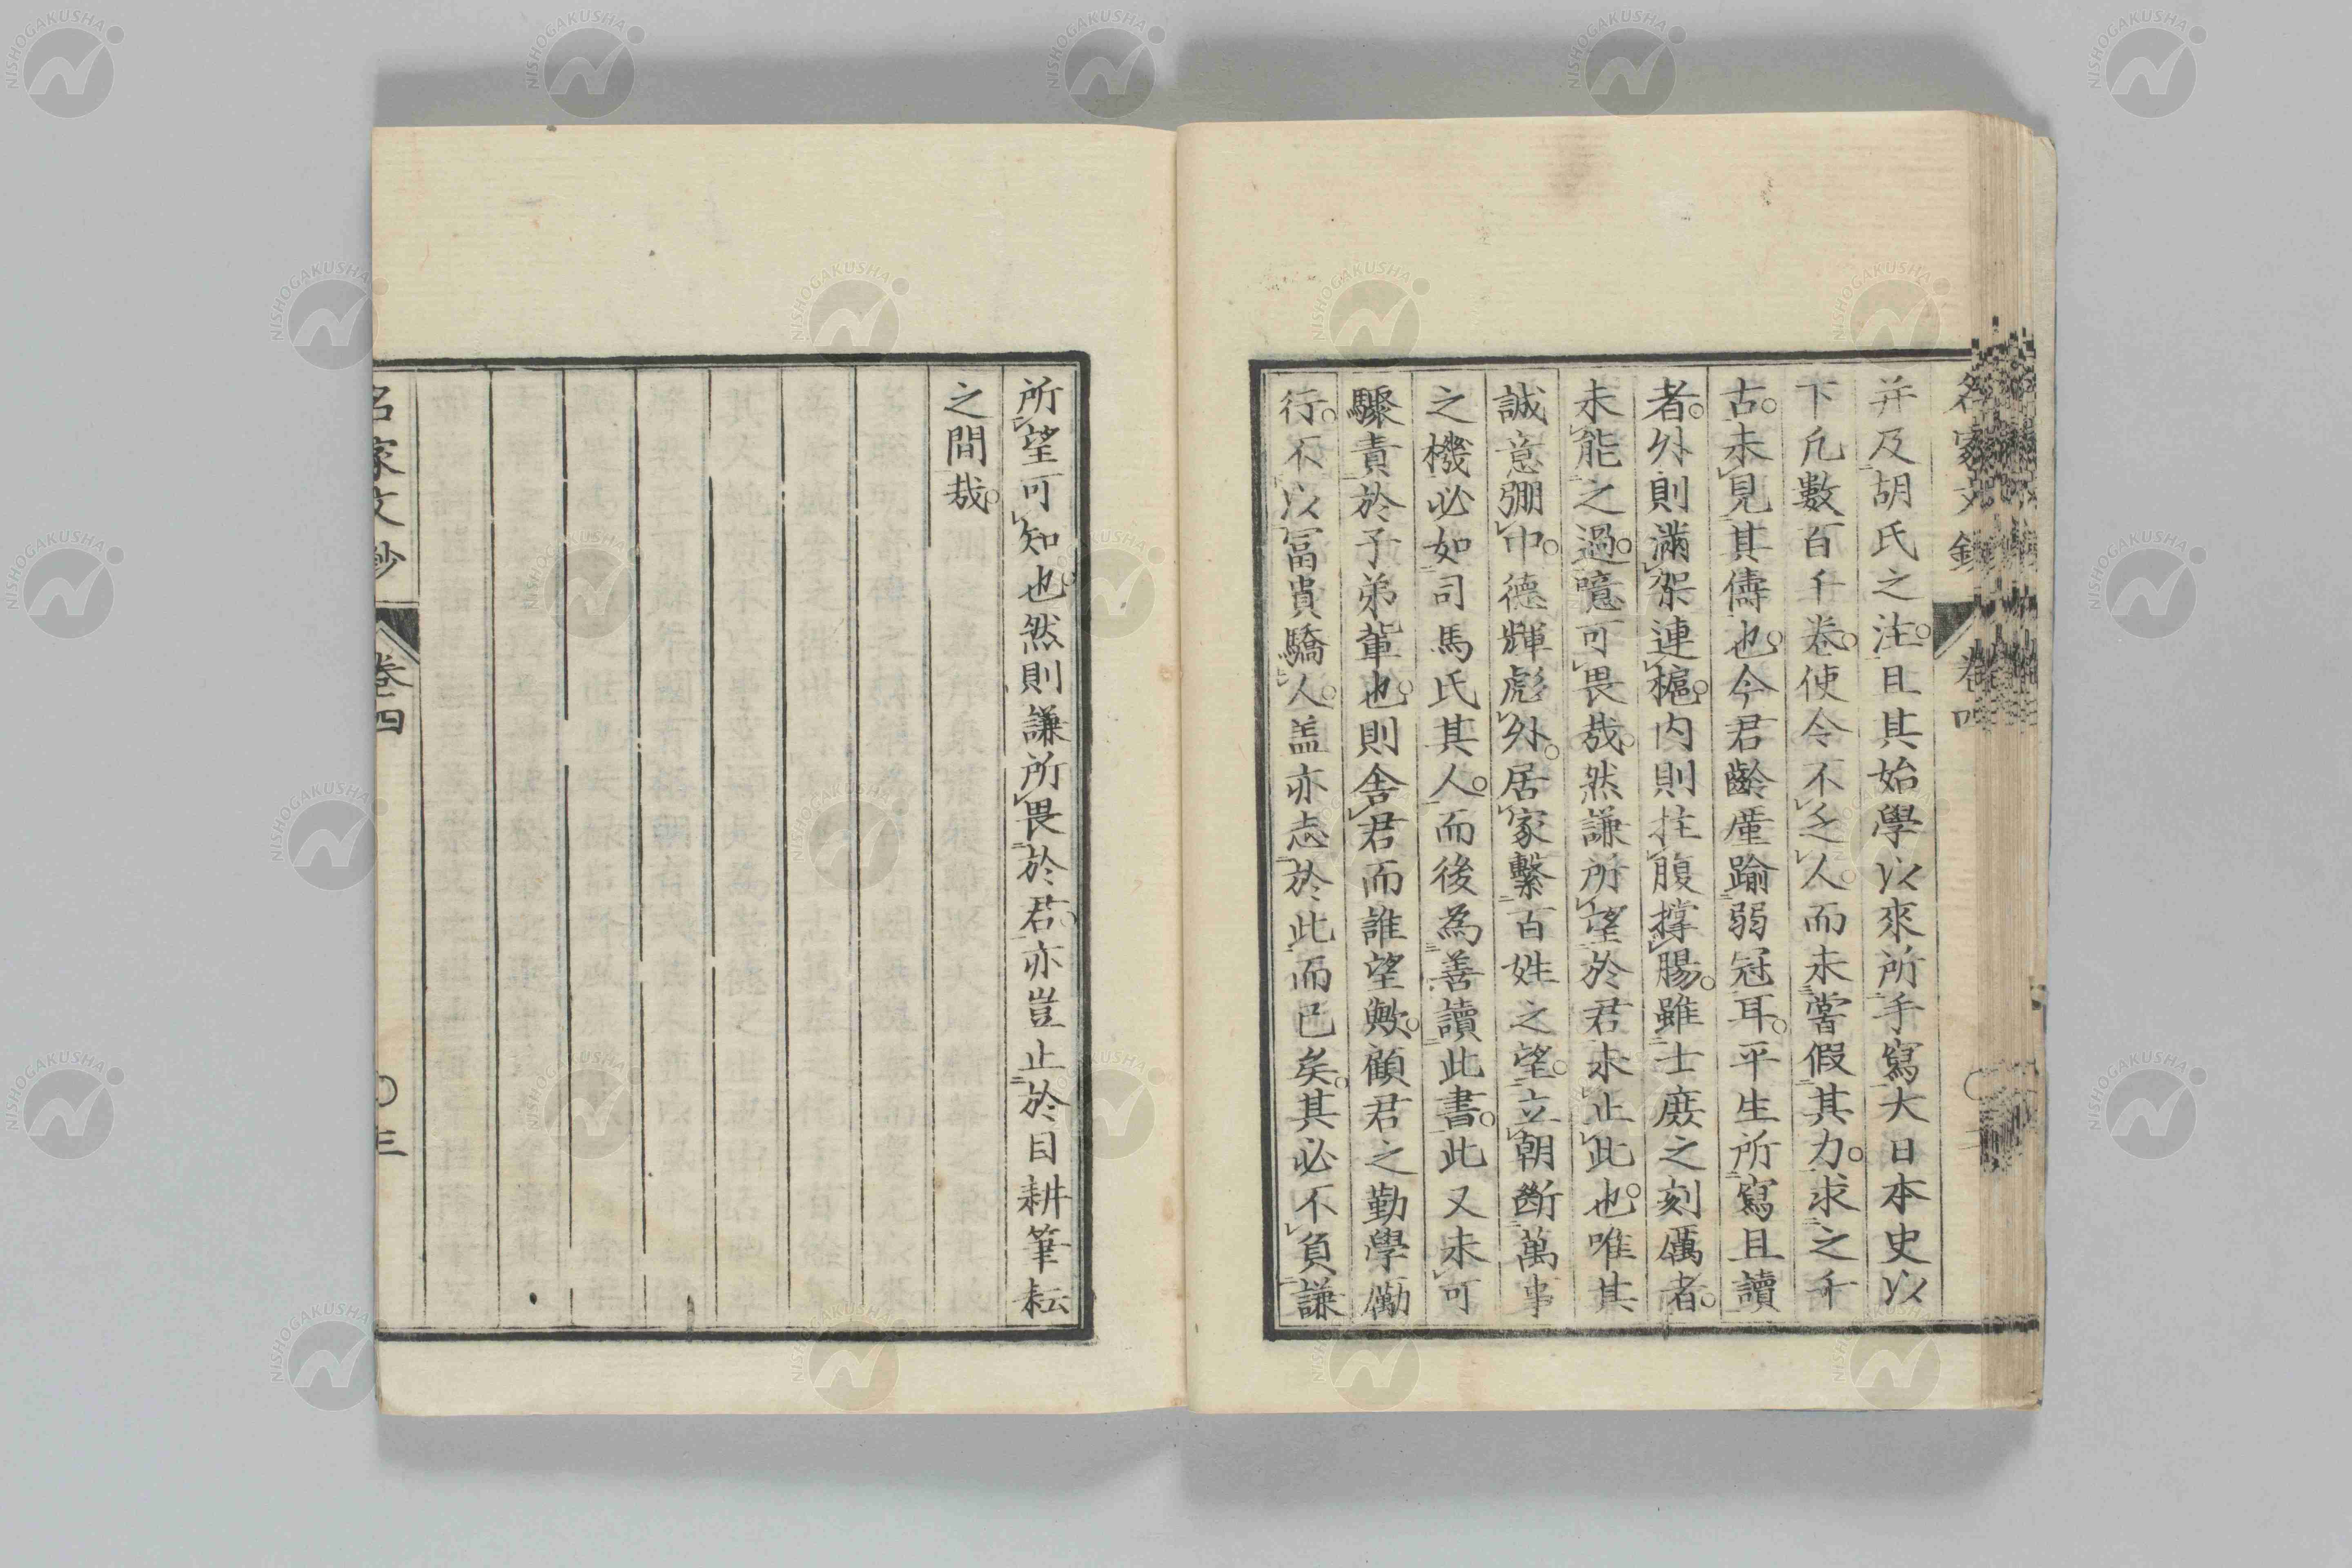 名家文鈔 卷四
并及胡氏之注。且其始學以來所手寫大日本史以
下凡數百千卷。使令不乏人。而未嘗假其力。求之千
古。未見其儔也。今君齡厪踰弱冠耳。平生所寫且讀
者。外則滿架連楹。内則拄腹撑腸。雖士庶之刻厲者。
未能之過。噫可畏哉。然謙所望於君未止此也。唯其
誠意弸中。德輝彪外。居家繫百姓之望。立朝斷萬事
之機必如司馬氏其人。而後為善讀此書。此又未可
驟責於子弟輩也。則舍君而誰望歟。顧君之勤學勵
行。不以富貴驕人。盖亦志於此而已矣。其必不負謙
所望可知也。然則謙所畏於君。亦豈止於目耕筆耘
之間哉。
名家文鈔 卷四 〇三
NISHOGAKUSHA